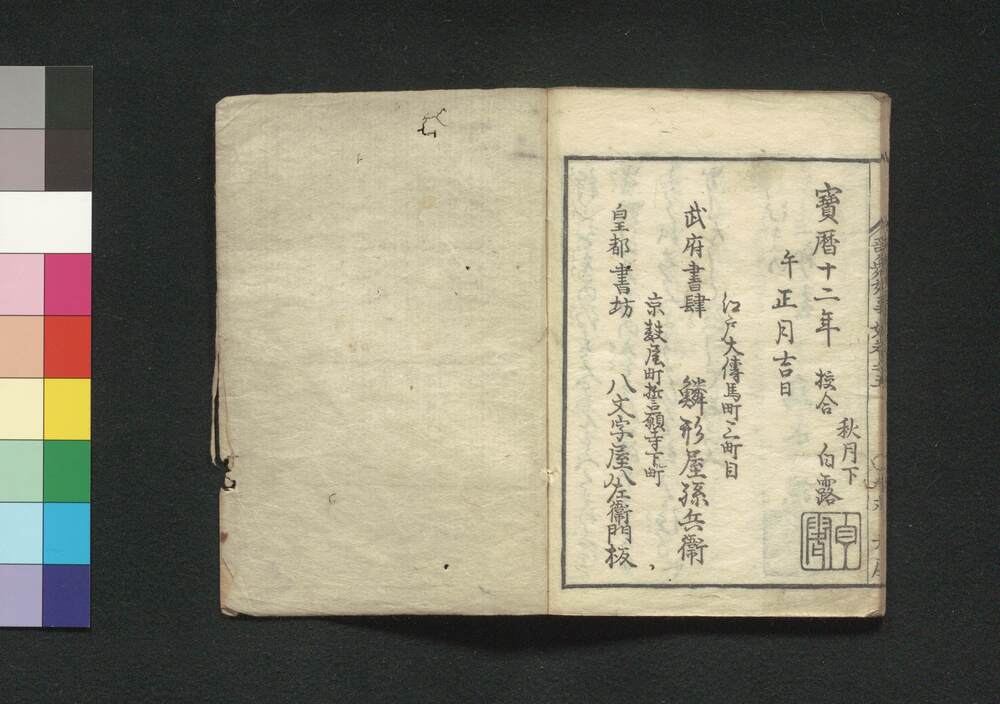 寶暦十二年
午正月吉日
校合
秋月下
白露
江戸大傳馬町三町目
武府書肆 鱗形屋孫兵衞
京麩屋町誓願寺下町
皇都書坊 八文字屋八左衞門板